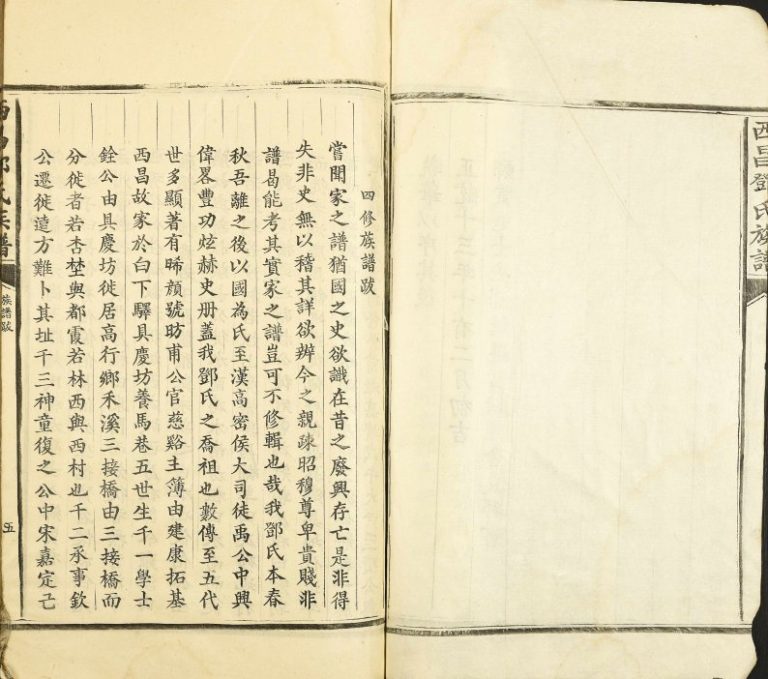 西昌鄧氏族譜
四修族譜跋
嘗聞家之譜猶國之史欲識在昔之廢興存亡是非得
失非史無以稽其詳欲辨今之親疎昭穆尊卑貴賤非
譜曷能考其實家之譜豈可不修輯也哉我鄧氏本春
秋吾離之後以國為氏至漢高密侯大司徒禹公中興
偉畧豐功炫赫史册蓋我鄧氏之喬祖也數傳至五代
世多顯著有晞顔號昉甫公官慈谿主簿由建康拓基
西昌故家於白下驛具慶坊養馬巷五世生千一學士
銓公由具慶坊徙居高行鄉禾溪三接橋由三接橋而
分徙者若杏塾與都霞若林西與西村也千二承事欽
公遷徙遠方難卜其址千三神童復之公中宋嘉定己
族譜跋
五